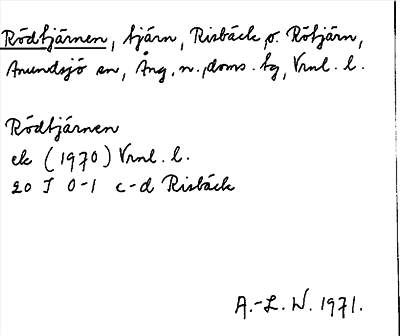 Rödtjärnen, tjärn, Risbäck o. Rötjärn,
Anundsjö sn, Ång. n. doms. tg, Vrnl. l.
Rödtjärnen
ek (1970) Vrnl. l.
20 J 0-1 c-d Risbäck
A.-L. W. 1971.